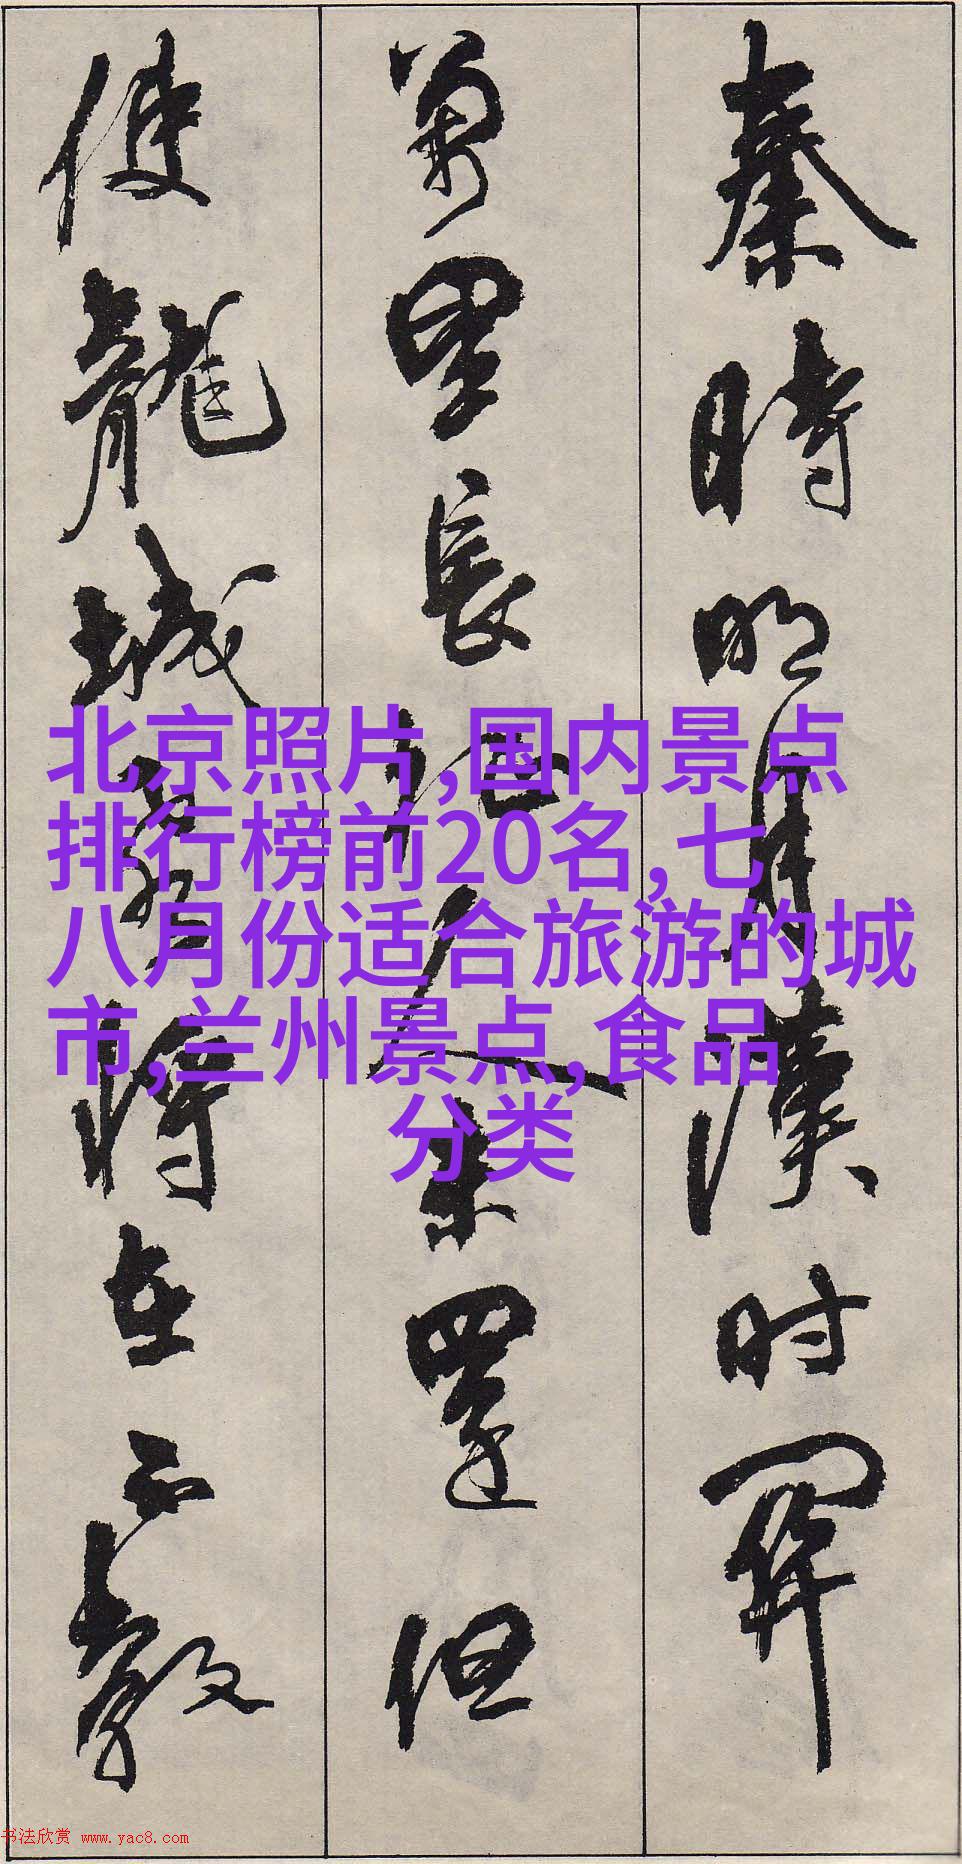 秦時明月漢時關
萬里長征人未還但
使龍城飛將在不教
北京照片,国内景点
排行榜前20名,七
八月份适合旅游的城
市,兰州景点,食品
分类
书法欣赏 www.yac8.com